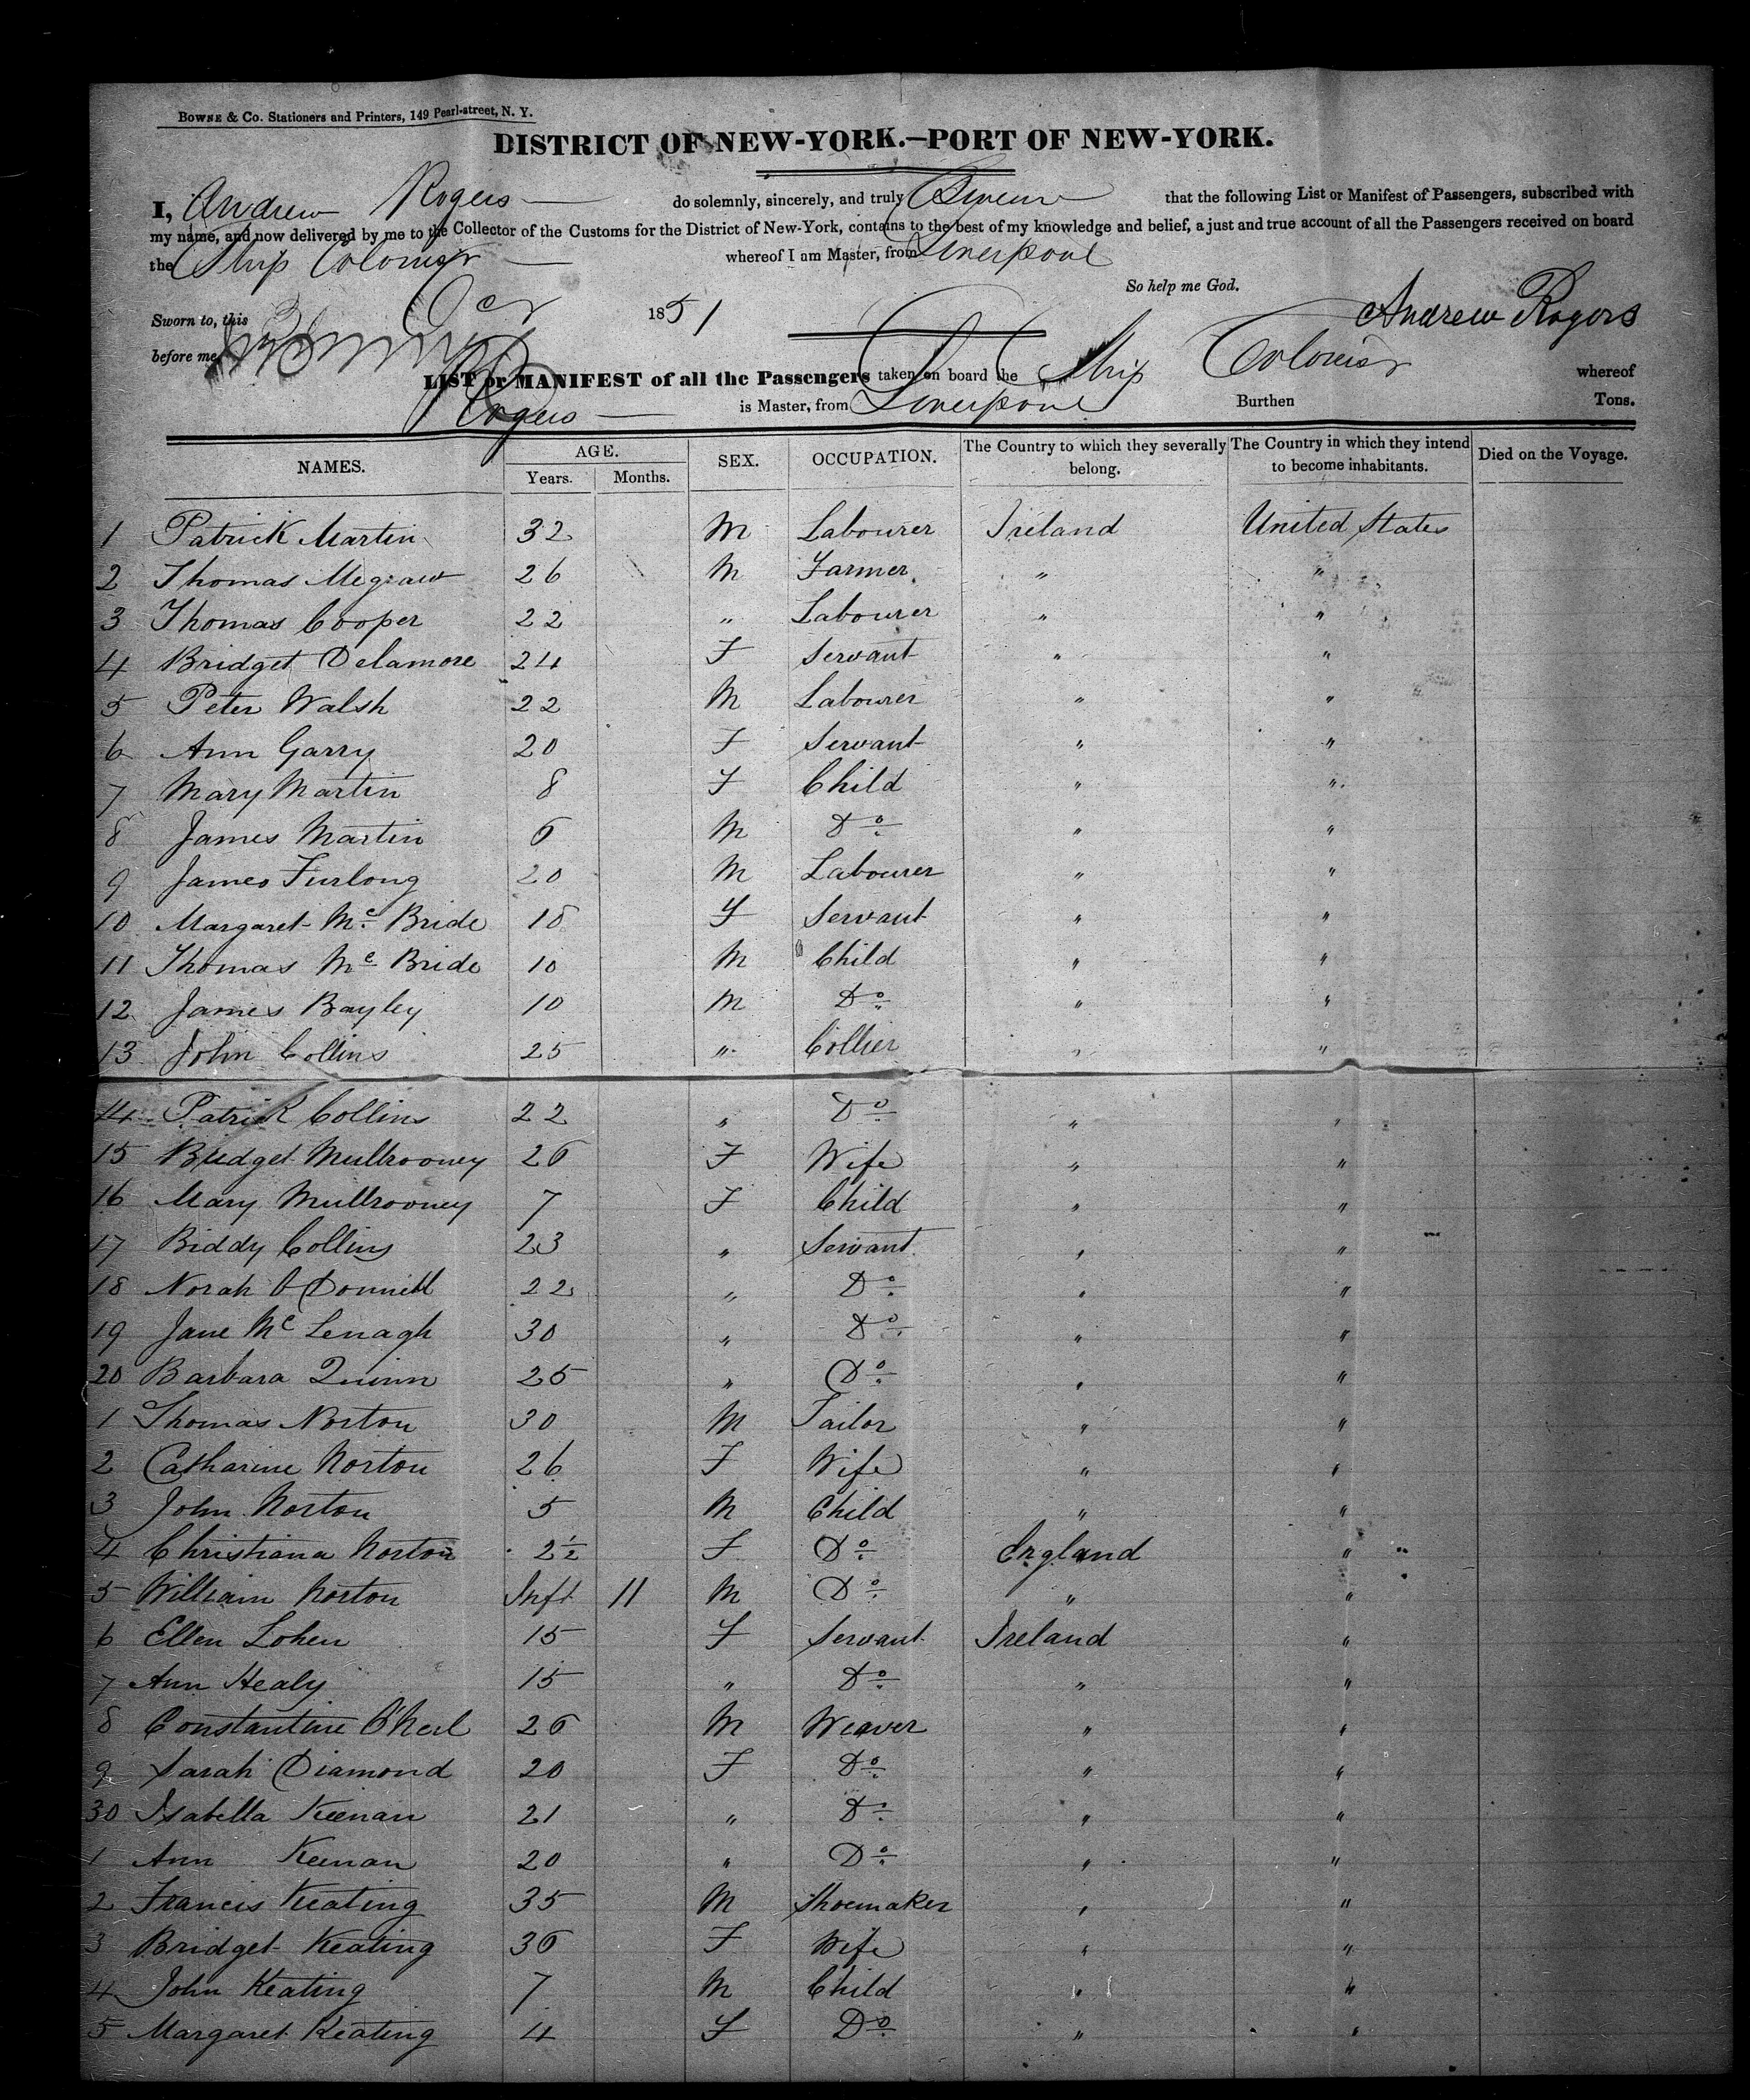 BOWNE & Co. Stationers and Printers, 149 Pearl-street, N. Y.
DISTRICT OF NEW-YORK.—PORT OF NEW-YORK.
I, Andrew Rogers do solemnly, sincerely, and truly Swear that the following List or Manifest of Passengers, subscribed with
my name, and now delivered by me to the Collector of the Customs for the District of New-York, contains to the best of my knowledge and belief, a just and true account of all the Passengers received on board
the Ship Colonist whereof I am Master, from Liverpool
So help me God.
Sworn to, this Oct 1851 Andrew Rogers
before me
LIST or MANIFEST of all the Passengers taken on board the Ship Colonist whereof
Rogers is Master, from Liverpool Burthen Tons.
NAMES. AGE. Years. Months. SEX. OCCUPATION. The Country to which they severally belong. The Country in which they intend to become inhabitants. Died on the Voyage.
1 Patrick Martin 32 M Labourer Ireland United States
2 Thomas Megraw 26 M Farmer " "
3 Thomas Cooper 22 " Labourer " "
4 Bridget Delamore 24 F Servant " "
5 Peter Walsh 22 M Labourer " "
6 Ann Garry 20 F Servant " "
7 Mary Martin 8 F Child " "
8 James Martin 6 M Do " "
9 James Furlong 20 M Labourer " "
10 Margaret Mc Bride 18 F Servant " "
11 Thomas Mc Bride 10 M Child " "
12 James Bayley 10 M Do " "
13 John Collins 25 " Collier " "
14 Patrick Collins 22 " Do " "
15 Bridget Mullrooney 26 F Wife " "
16 Mary Mullrooney 7 F Child " "
17 Biddy Collins 23 " Servant " "
18 Norah O Donnell 22 " Do " "
19 Jane Mc Lenagh 30 " Do " "
20 Barbara Quinn 25 " Do " "
1 Thomas Norton 30 M Tailor " "
2 Catharine Norton 26 F Wife " "
3 John Norton 5 M Child " "
4 Christiana Norton 2½ F Do England "
5 William Norton Inft 11 M Do " "
6 Ellen Lohen 15 F Servant Ireland "
7 Ann Healy 15 " Do " "
8 Constantine O'Neil 26 M Weaver " "
9 Sarah Diamond 20 F Do " "
30 Isabella Keenan 21 " Do " "
1 Ann Keenan 20 " Do " "
2 Francis Keating 35 M Shoemaker " "
3 Bridget Keating 36 F Wife " "
4 John Keating 7 M Child " "
5 Margaret Keating 4 F Do " "